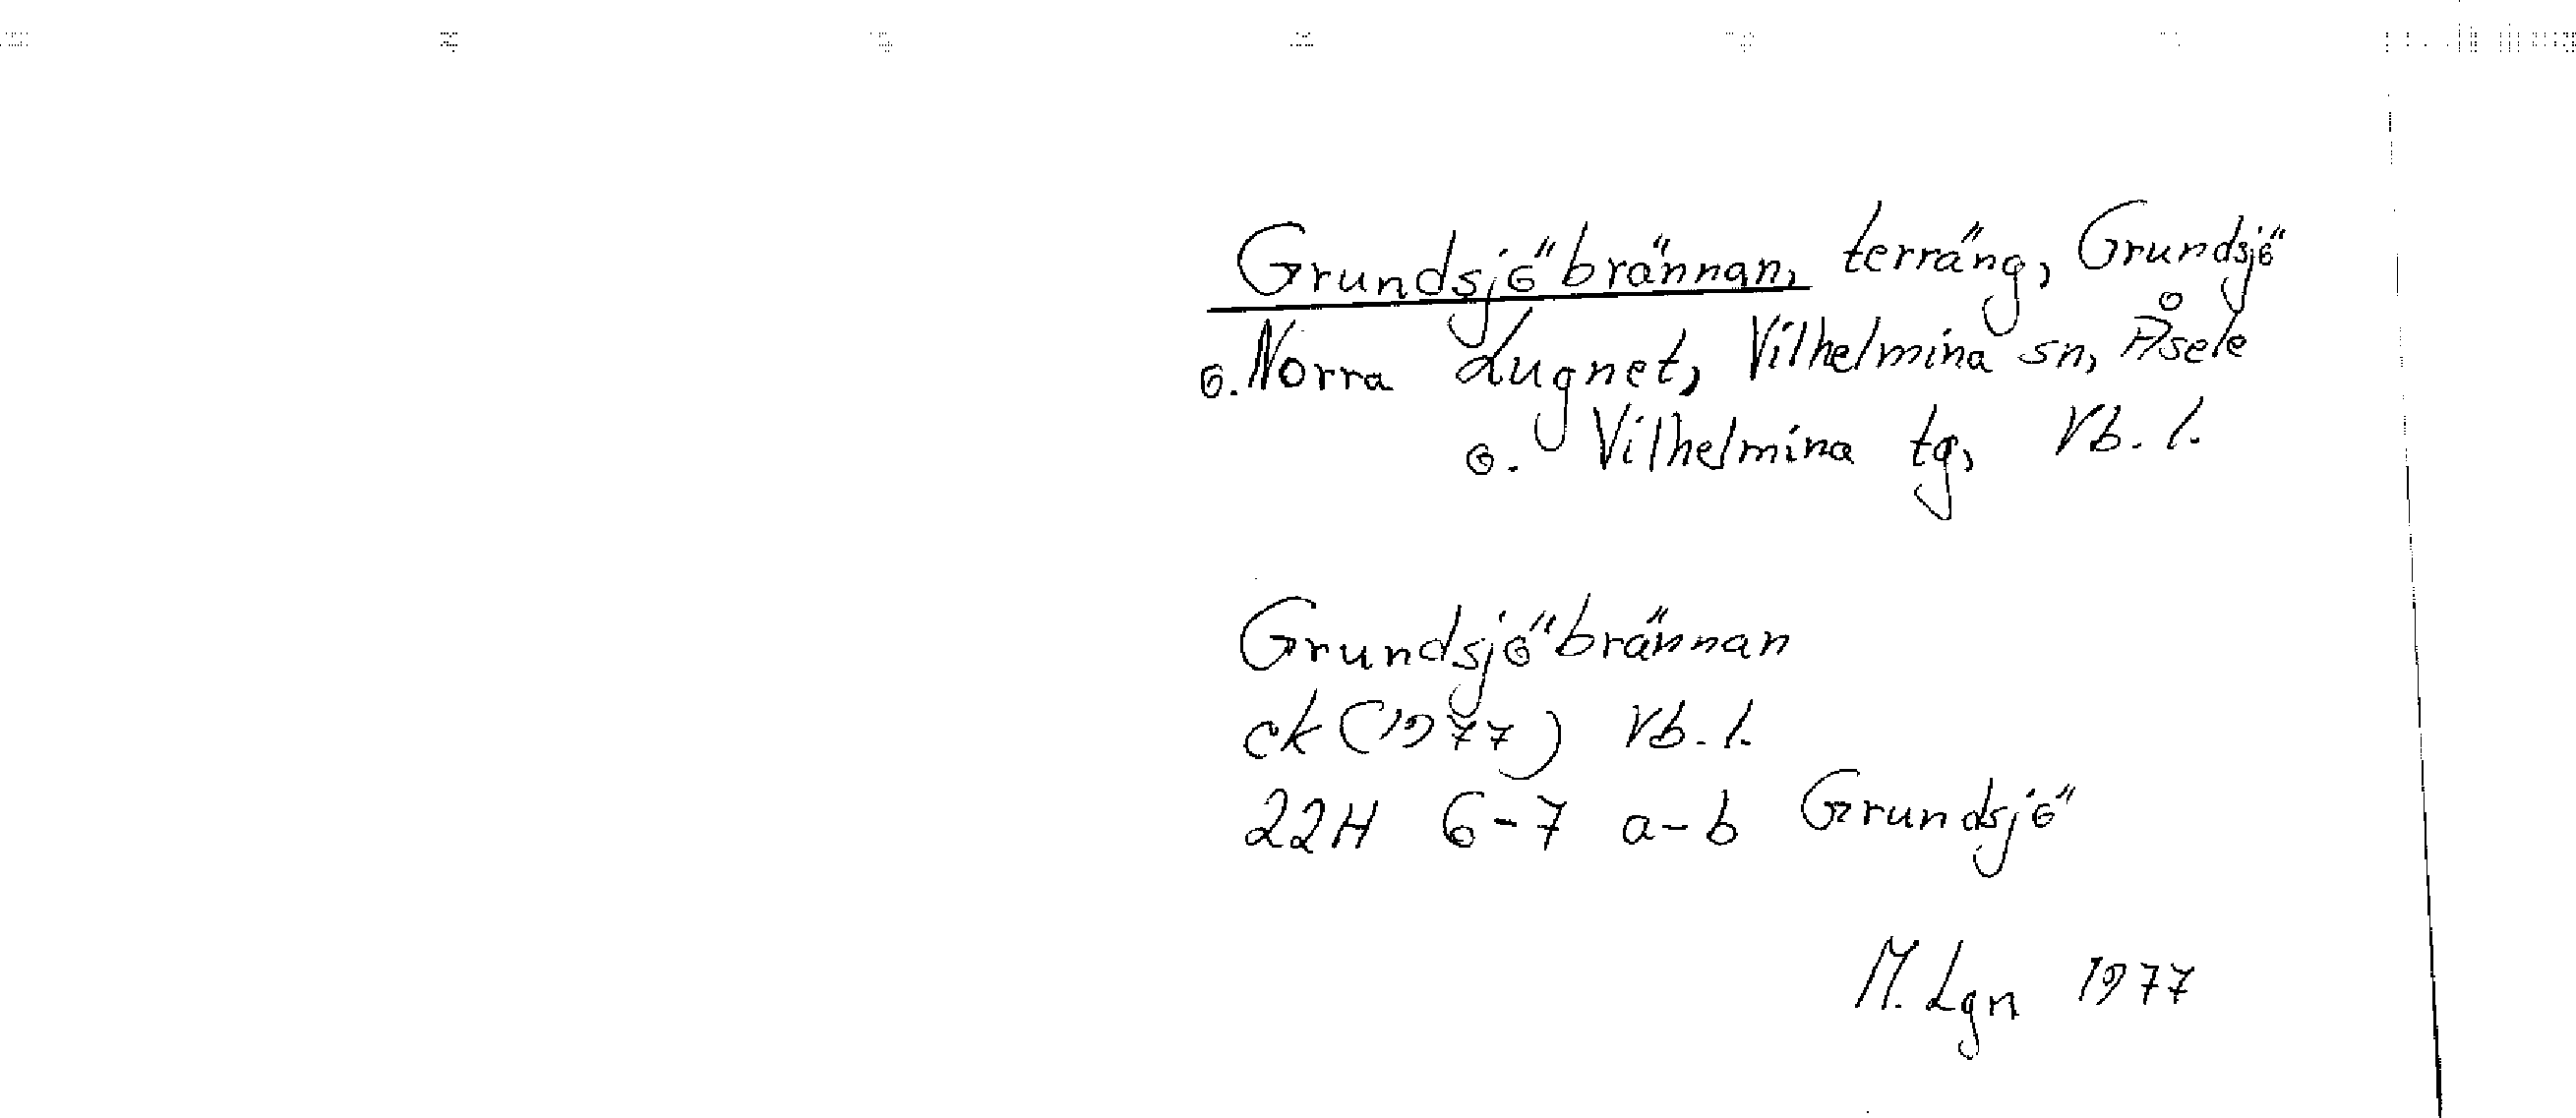 Grundsjöbrännan, terräng, Grundsjö
o. Norra Lugnet, Vilhelmina sn, Åsele
o. Vilhelmina tg, Vb. l.
Grundsjöbrännan
ek (1977) Vb. l.
22H 6-7 a-b Grundsjö
M. Lgn 1977